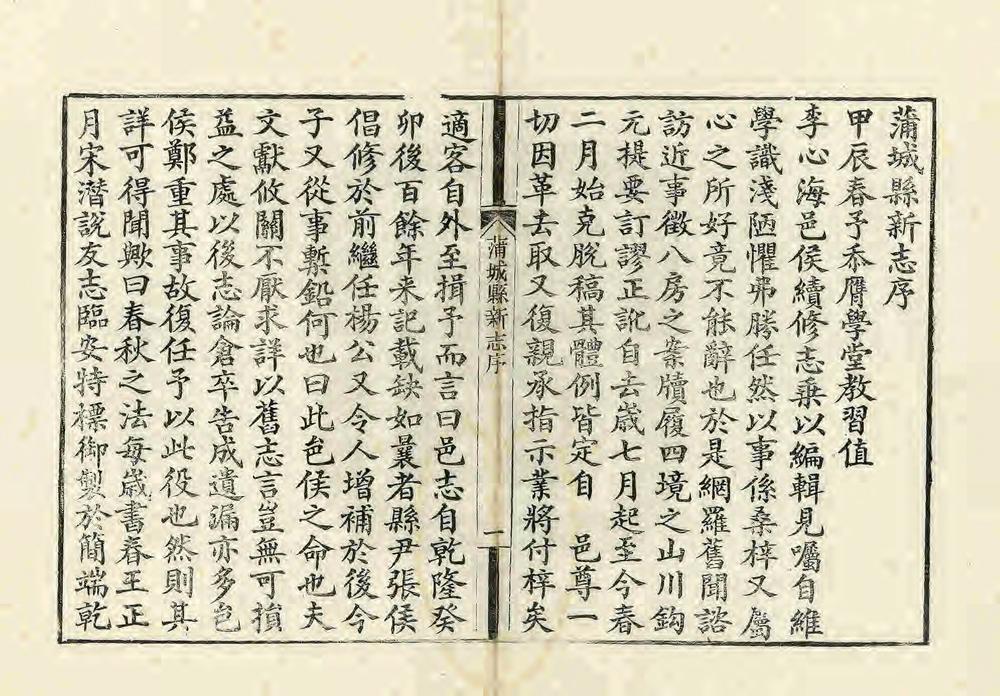 蒲城縣新志序
甲辰春予忝膺學堂教習值
李心海邑侯續修志乗以編輯見囑自維
學識淺陋懼弗勝任然以事係桑梓又屬
心之所好竟不能辭也於是網羅舊聞諮
訪近事徵八房之案牘履四境之山川鈎
元提要訂謬正訛自去歲七月起至今春
二月始克脫稿其體例皆定自　邑尊一
切因革去取又復親承指示業將付梓矣
蒲城縣新志序
一
適客自外至揖予而言曰邑志自乾隆癸
卯後百餘年来記載缺如曩者縣尹張侯
倡修於前繼任楊公又令人增補於後今
子又從事槧鉛何也曰此邑侯之命也夫
文獻攸關不厭求詳以舊志言豈無可損
益之處以後志論倉卒告成遺漏亦多邑
侯鄭重其事故復任予以此役也然則其
詳可得聞歟曰春秋之法每歲書春王正
月宋潛説友志臨安特標御製於簡端乾